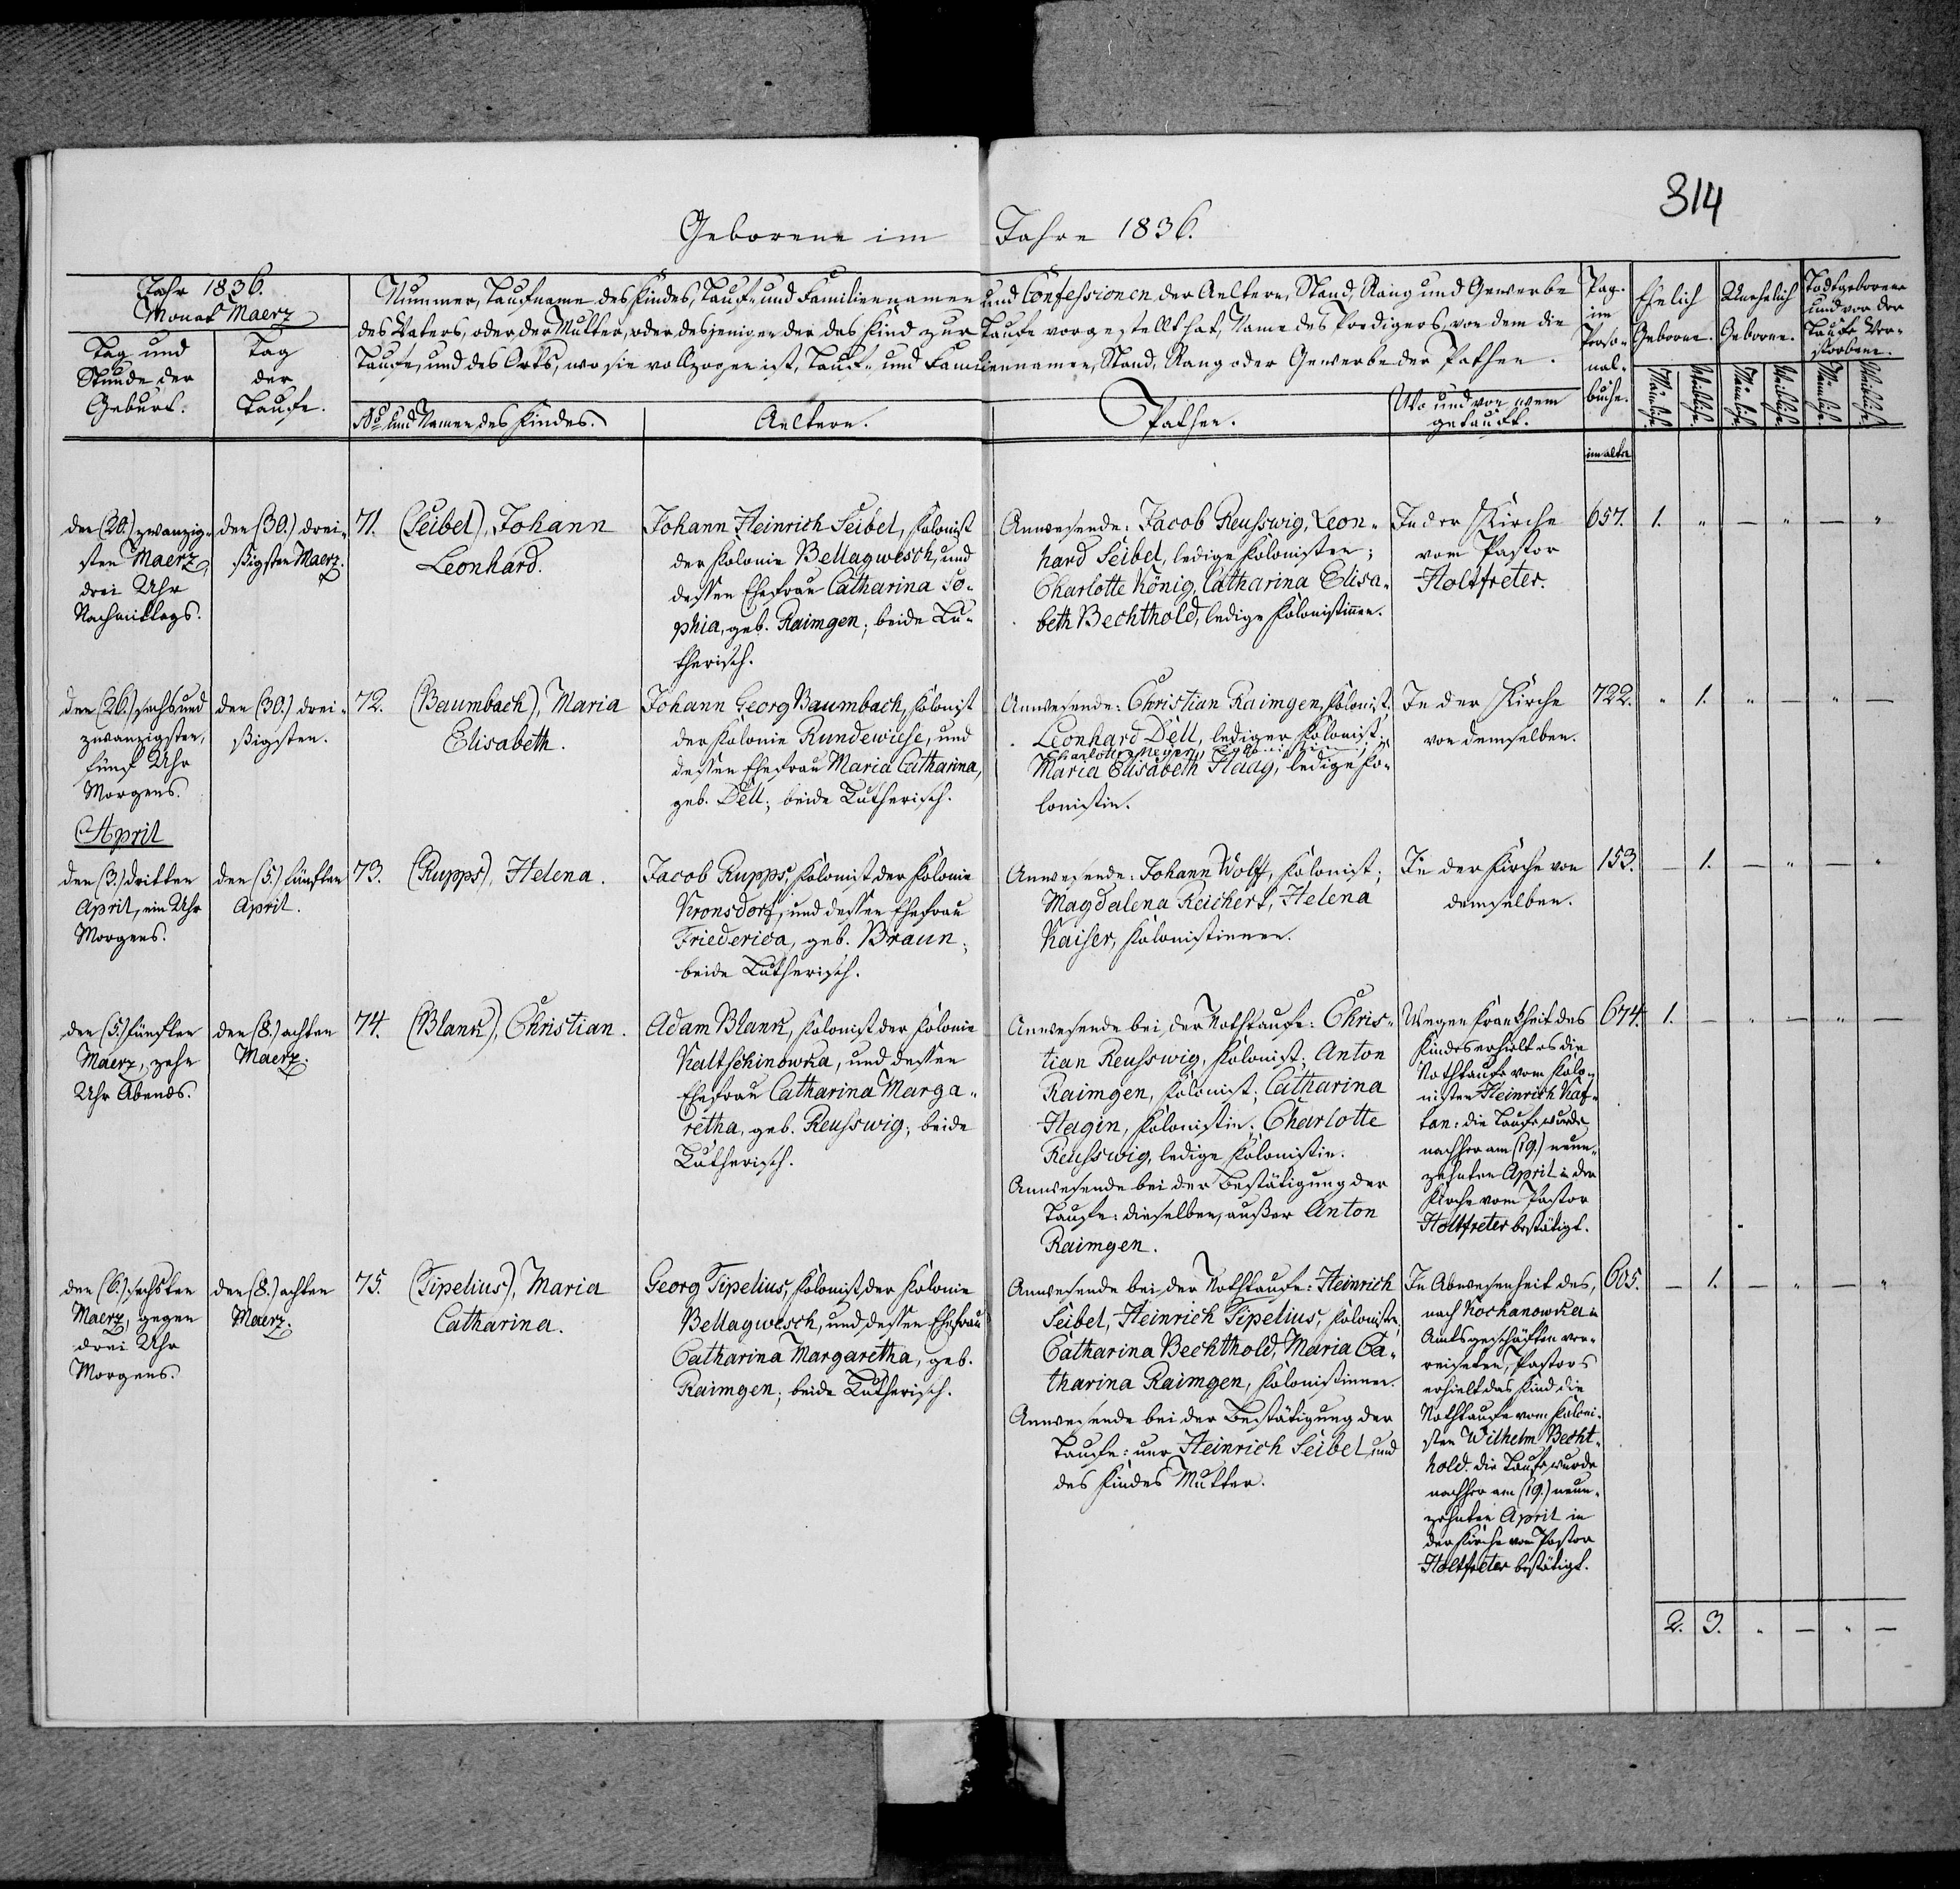 314
Geborene im Jahre 1836.
Jahr 1836.
Monat Maerz
Tag und
Stunde der
Geburt.
Tag
der
Taufe.
Nummer, Taufname des Kindes, Tauf- und Familiennamen und Confessionen der Aeltern, Stand, Rang und Gewerbe
des Vaters, oder der Mutter, oder desjenigen der das Kind zur Taufe vorgestellt hat, Name des Predigers, von dem die
Taufe, und des Orts, wo sie vollzogen ist, Tauf- und Familiennamen, Stand, Rang oder Gewerbe der Pathen.
No. und Namen des Kindes.
Aeltern.
Pathen.
Wo und von wem
getauft.
Pag.
im
Perso-
nal-
buche.
Ehelich
Geborne.
Unehelich
Geborne.
Todtgeborene
und vor der
Taufe Ver-
storbene.
Männliche. Weibliche. Männliche. Weibliche. Männliche. Weibliche.
im alten
den (20.) zwanzig-
sten Maerz,
drei Uhr
Nachmittags.
den (30.) drei-
ßigsten Maerz.
71. (Seibel), Johann
Leonhard.
Johann Heinrich Seibel, Kolonist
der Kolonie Bellagwesch, und
dessen Ehefrau Catharina So-
phia, geb. Raimgen; beide Lu-
therisch.
Anwesende: Jacob Reusswig, Leon-
hard Seibel, ledige Kolonisten;
Charlotte König, Catharina Elisa-
beth Bechthold, ledige Kolonistinnen.
In der Kirche
vom Pastor
Holtfreter.
657. 1. " — " — "
den (26.) sechs und
zwanzigsten,
fünf Uhr
Morgens.
den (30.) drei-
ßigsten.
72. (Baumbach), Maria
Elisabeth.
Johann Georg Baumbach, Kolonist
der Kolonie Rundewiese, und
dessen Ehefrau Maria Catharina,
geb. Dell; beide Lutherisch.
Anwesende: Christian Raimgen, Kolonist,
Leonhard Dell, lediger Kolonist;
Charlotte Meyer, Kolonistin;
Maria Elisabeth Haag, ledige Ko-
lonistin.
In der Kirche
von demselben.
722. " 1. " — " —
April
den (3.) dritten
April, ein Uhr
Morgens.
den (5.) fünften
April.
73. (Rupps), Helena.
Jacob Rupps, Kolonist der Kolonie
Kronsdorf, und dessen Ehefrau
Friederica, geb. Braun;
beide Lutherisch.
Anwesende: Johann Wolff, Kolonist;
Magdalena Reichert, Helena
Kaiser, Kolonistinnen.
In der Kirche von
demselben.
153. — 1. — " — "
den (5.) fünften
Maerz, zehn
Uhr Abends.
den (8.) achten
Maerz.
74. (Blank), Christian.
Adam Blank, Kolonist der Kolonie
Kaltschinowka, und dessen
Ehefrau Catharina Marga-
retha, geb. Reusswig; beide
Lutherisch.
Anwesende bei der Nothtaufe: Chris-
tian Reusswig, Kolonist; Anton
Raimgen, Kolonist; Catharina
Hagin, Kolonistin; Charlotte
Reusswig, ledige Kolonistin.
Anwesende bei der Bestätigung der
Taufe: dieselben, außer Anton
Raimgen.
Wegen Krankheit des
Kindes erhielt es die
Nothtaufe vom Kolo-
nisten Heinrich Kaf-
tan: die Taufe wurde
nachher am (19.) neun-
zehnten April in der
Kirche vom Pastor
Holtfreter bestätigt.
674. 1. — " — " —
den (6.) sechsten
Maerz, gegen
drei Uhr
Morgens.
den (8.) achten
Maerz.
75. (Tipelius), Maria
Catharina.
Georg Tipelius, Kolonist der Kolonie
Bellagwesch, und dessen Ehefrau
Catharina Margaretha, geb.
Raimgen; beide Lutherisch.
Anwesende bei der Nothtaufe: Heinrich
Seibel, Heinrich Tipelius, Kolonisten;
Catharina Bechthold, Maria Ca-
tharina Raimgen, Kolonistinnen.
Anwesende bei der Bestätigung der
Taufe: nur Heinrich Seibel und
des Kindes Mutter.
In Abwesenheit des,
nach Kochanowka in
Amtsgeschäften ver-
reiseten, Pastors
erhielt das Kind die
Nothtaufe vom Koloni-
sten Wilhelm Becht-
hold. die Taufe wurde
nachher am (19.) neun-
zehnten April in
der Kirche vom Pastor
Holtfreter bestätigt.
605. — 1. — " — "
2. 3. " — " —